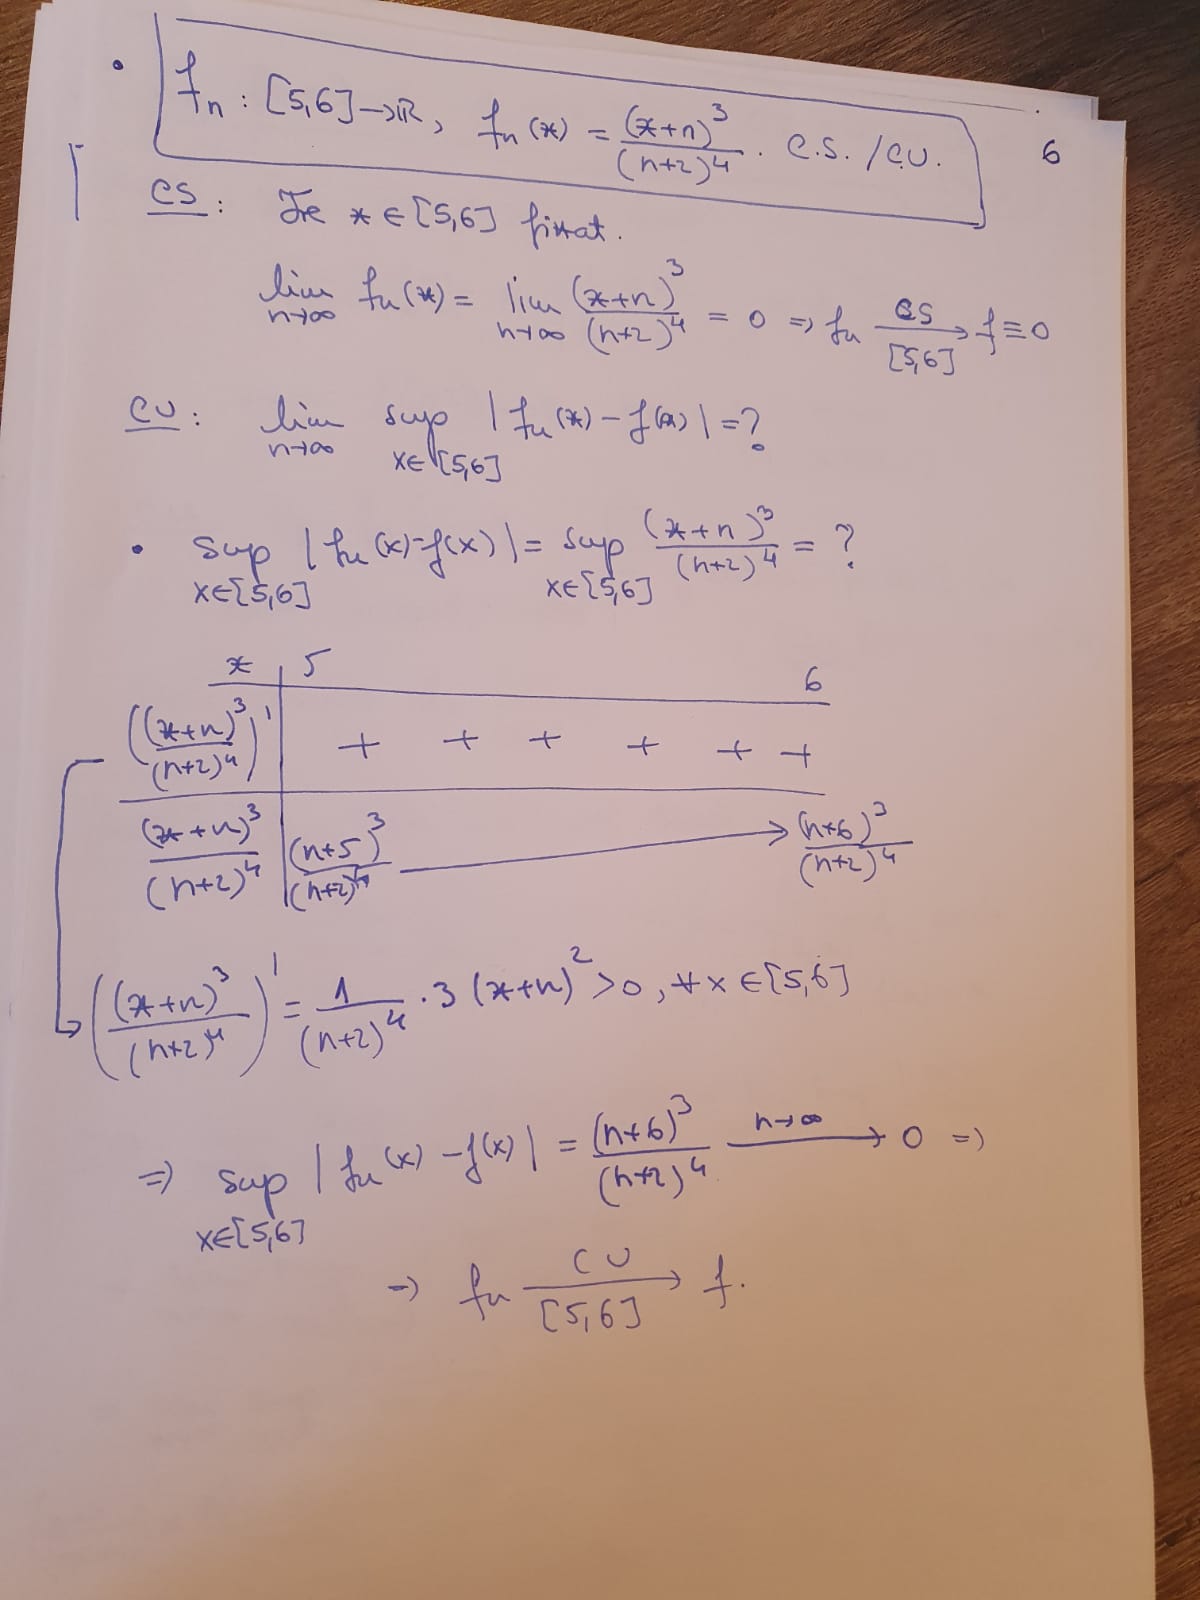 • fn : [5,6] → ℝ, fn(x) = (x+n)³/(n+2)⁴. C.S. / C.U.
6
CS : Fie x ∈ [5,6] fixat.
lim n→∞ fn(x) = lim n→∞ (x+n)³/(n+2)⁴ = 0 => fn CS/[5,6] → f ≡ 0
CU : lim n→∞ sup x∈[5,6] |fn(x) − f(x)| = ?
• sup x∈[5,6] |fn(x) − f(x)| = sup x∈[5,6] (x+n)³/(n+2)⁴ = ?
x | 5 6
((x+n)³/(n+2)⁴)' | + + + + + +
(x+n)³/(n+2)⁴ | (n+5)³/(n+2)⁴ → (n+6)³/(n+2)⁴
((x+n)³/(n+2)⁴)' = 1/(n+2)⁴ · 3(x+n)² > 0, ∀ x ∈ [5,6]
=> sup x∈[5,6] |fn(x) − f(x)| = (n+6)³/(n+2)⁴ n→∞ → 0 =>
=> fn CU/[5,6] → f.